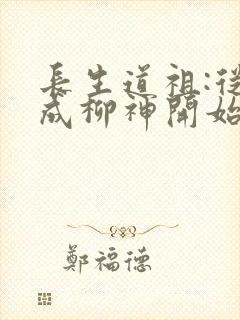 長生道祖:從
成柳神開始
鄭福德